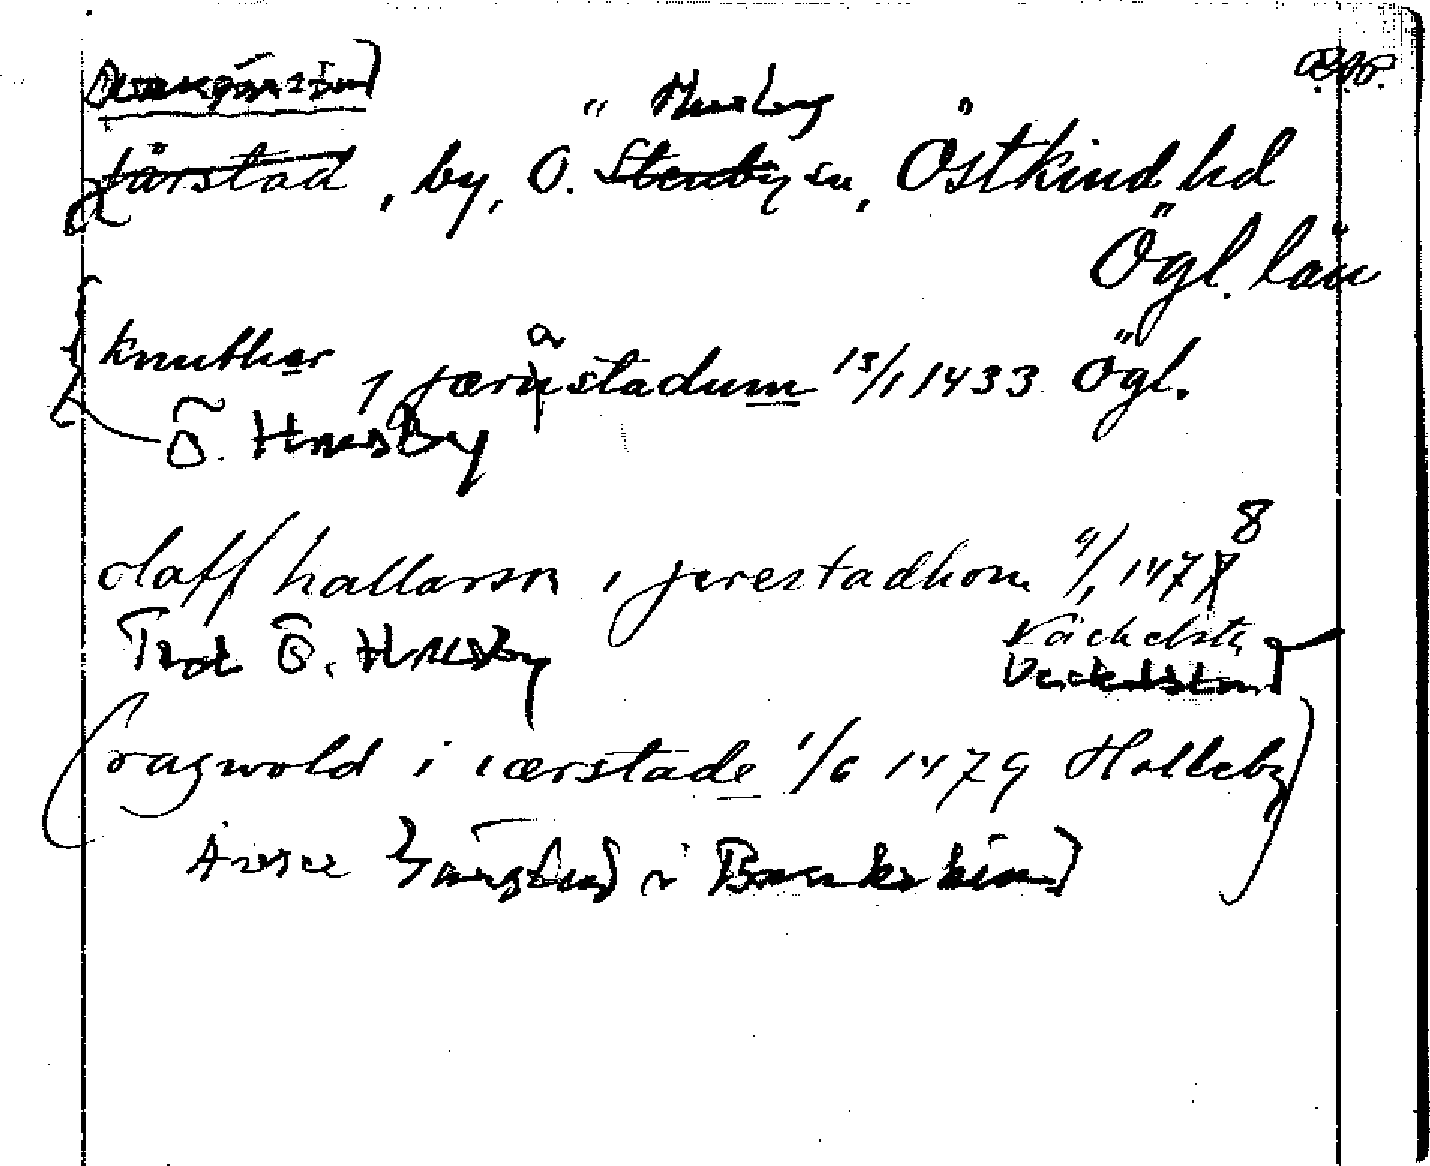 Husby
Järstad, by, Ö. Stenby sn, Östkind hd
Ögl. län
knuther j jærastadum 13/1 1433 Ögl.
Ö. Husby
olaff hallarson i jerestadhom 9/1 1478
Trol Ö. Husby
ragwold i iærstade 1/6 1479 Hålleby
Avser Järstad i Bankekind